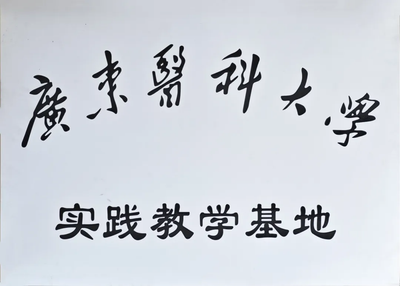 廣東醫科大學
实践教学基地